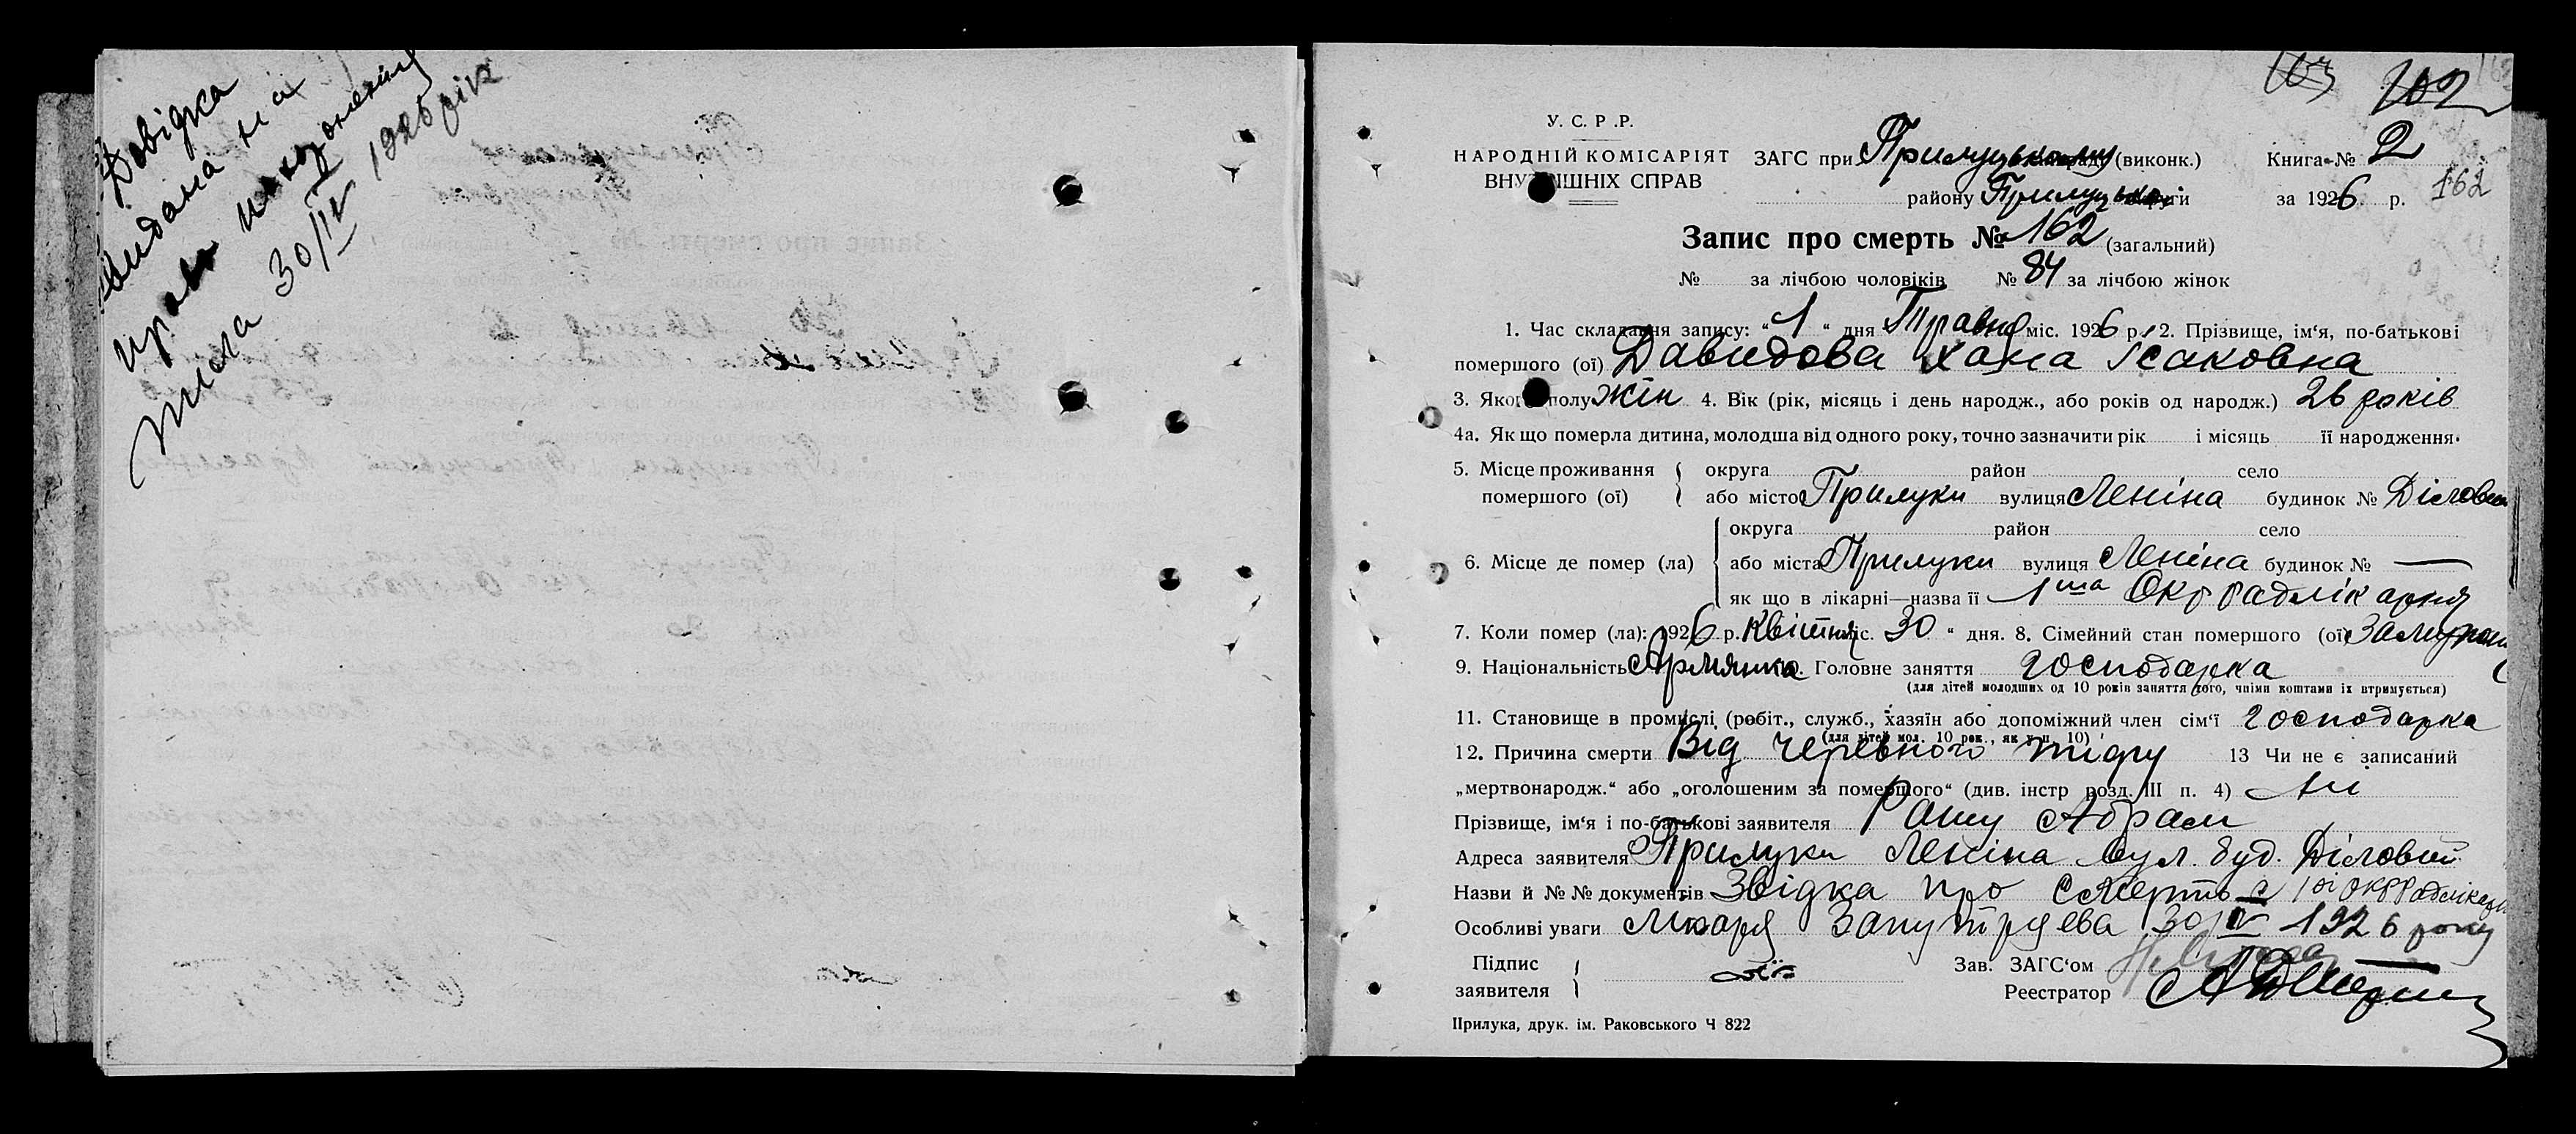 Довідка
видана на
право похоронення
тіла 30/IV 1926 рік
103 102
У. С. Р. Р.
НАРОДНІЙ КОМІСАРІЯТ
ВНУТРІШНІХ СПРАВ
ЗАГС при Прилуцькому (виконк.)
району Прилуцької округи
Книга № 2
за 1926 р. 162
Запис про смерть № 162 (загальний)
№ за лічбою чоловіків № 84 за лічбою жінок
1. Час складання запису: " 1 " дня Травня міс. 1926 р. 2. Прізвище, ім‘я, по-батькові
помершого (ої) Давидова Хана Ісаковна
3. Якого полу жін 4. Вік (рік, місяць і день народж., або років од народж.) 26 років
4а. Як що померла дитина, молодша від одного року, точно зазначити рік і місяць її народження.
5. Місце проживання помершого (ої) { округа район село
або місто Прилуки вулиця Леніна будинок № Діловий
6. Місце де помер (ла) { округа район село
або міста Прилуки вулиця Леніна будинок № —
як що в лікарні—назва її 1ша Окррадлікарня
7. Коли помер (ла): 1926 р. Квітня міс. 30 " дня. 8. Сімейний стан помершого (ої)
9. Національність Армянка. Головне заняття господарка
(для дітей молодших од 10 років заняття того, чиїми коштами їх втримується)
11. Становище в промислі (робіт., служб., хазяїн або допоміжний член сім‘ї господарка
(для дітей мол. 10 рок., як у п. 10)
12. Причина смерти Від черевного тифу 13 Чи не є записаний
„мертвонародж.“ або „оголошеним за помершого“ (див. інстр розд. III п. 4) Ні
Прізвище, ім‘я і по-батькові заявителя Абрам
Адреса заявителя Прилуки Леніна вул. буд. Діловий
Назви й №№ документів Звідка про смерть з 1ої Окррадлікарні
Особливі уваги Лікаря 30/IV 1926 року
Підпис заявителя {
Зав. ЗАГС‘ом
Реестратор
Прилука, друк. ім. Раковського Ч 822